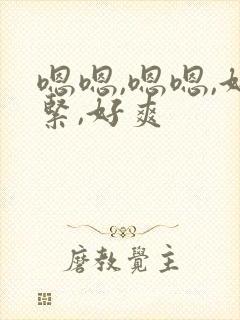 嗯嗯,嗯嗯,好
紧,好爽
磨教覺主